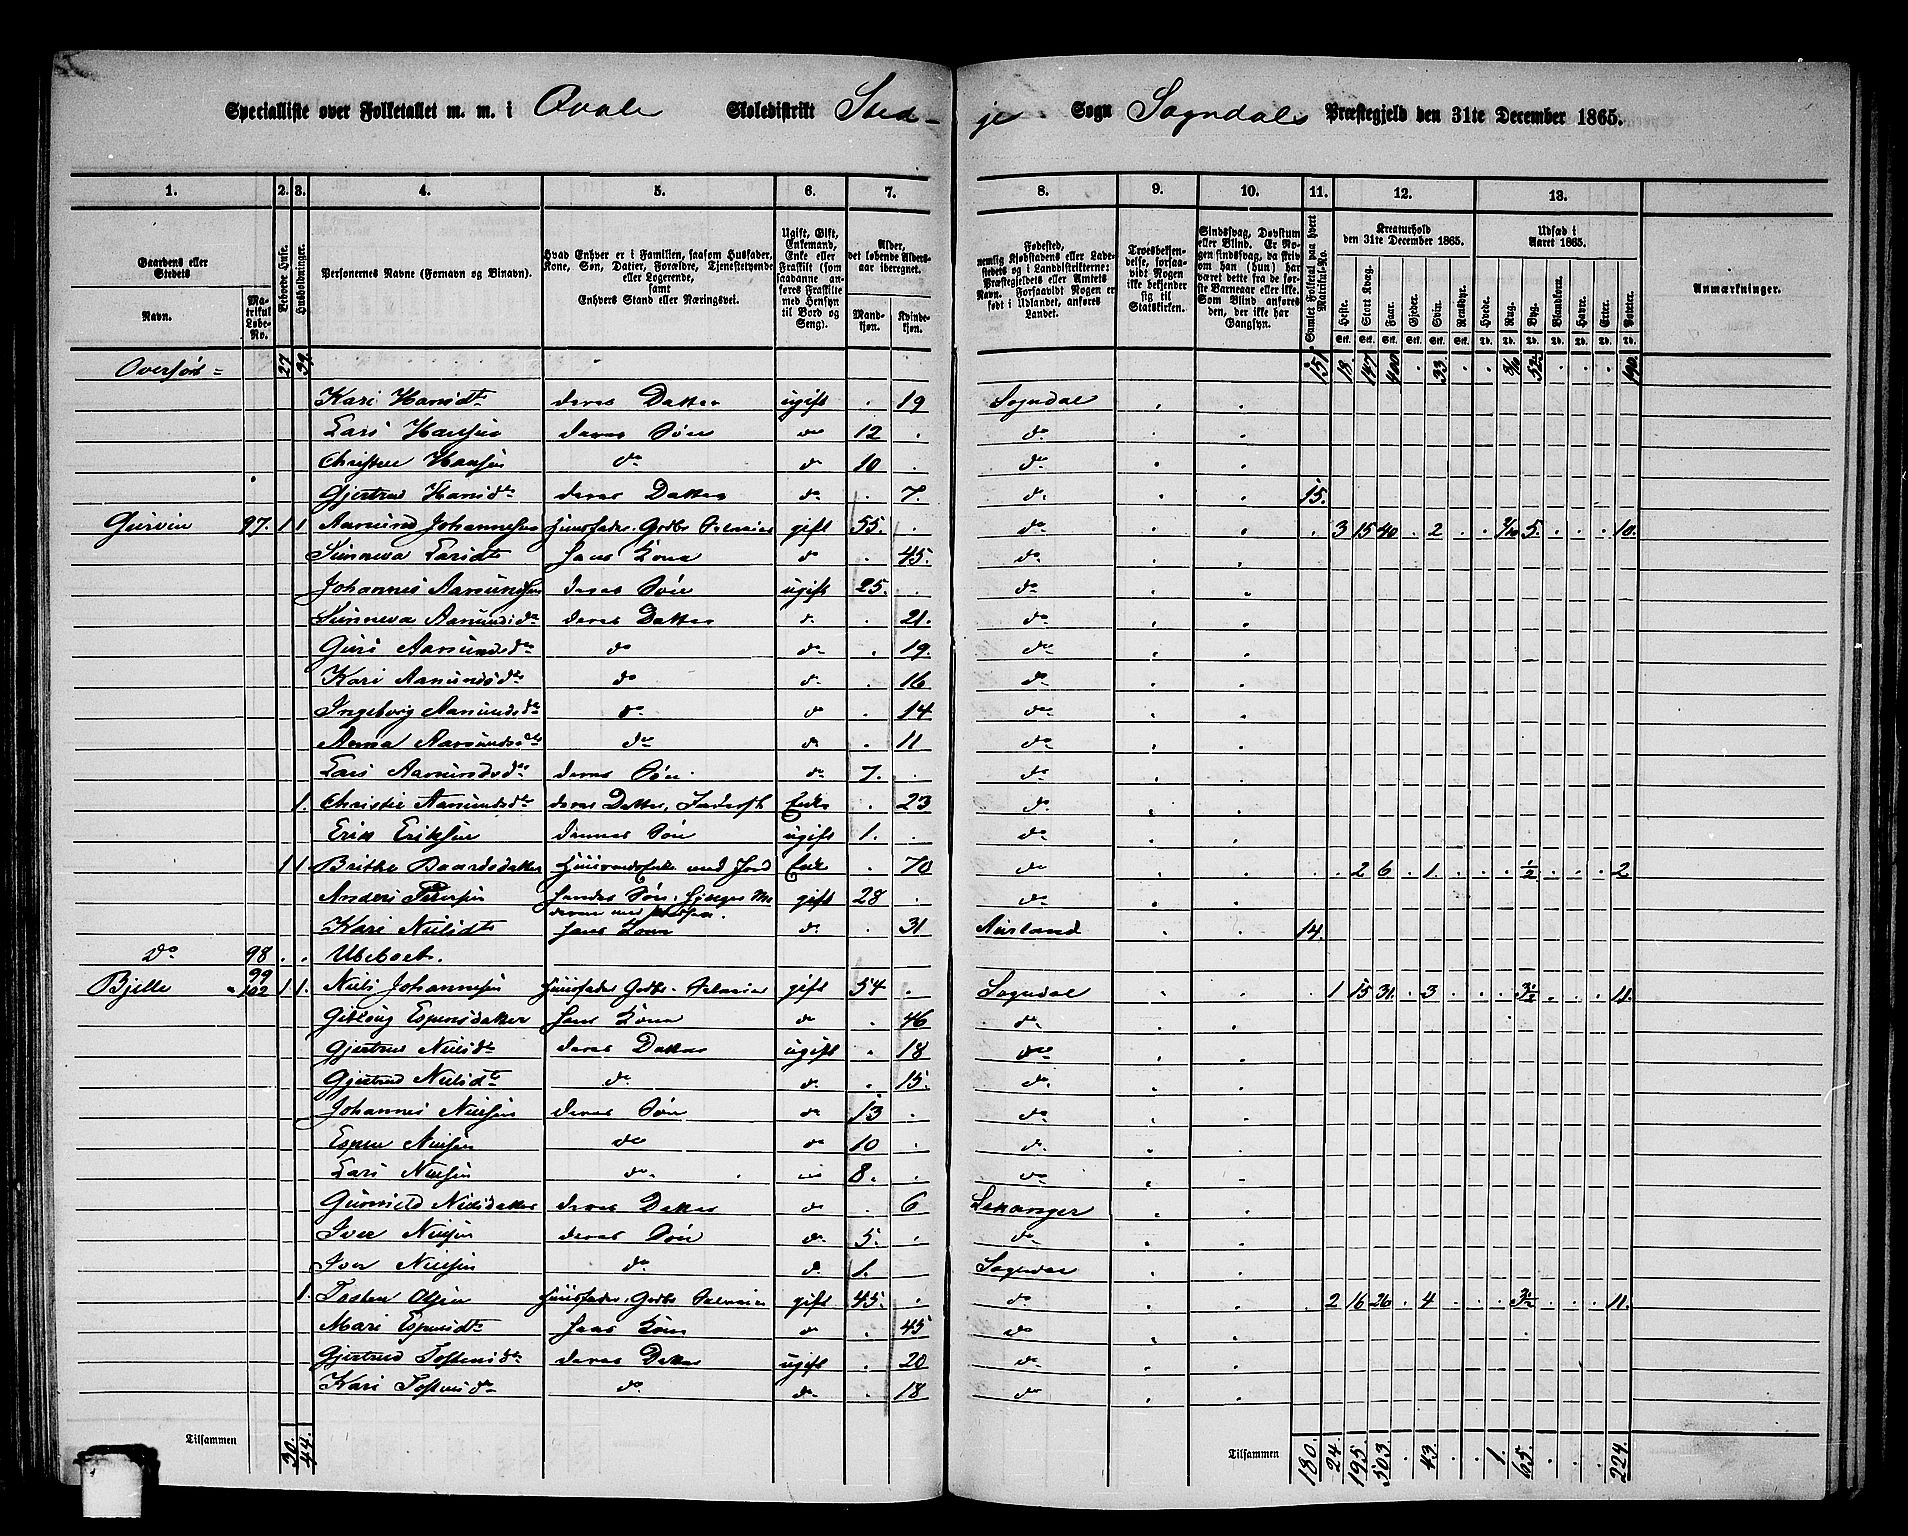 Specialliste over Folketallet m. m. i Qvale Skoledistrikt Sted-je Sogn Sogndals Præstegjeld den 31te December 1865.
1. 2. 3. 4. 5. 6. 7. 8. 9. 10. 11. 12. 13.
Gaardens eller Stedets
Navn.
Matrikul Løbe-No.
Beboede Huse.
Husholdninger.
Personernes Navne (Fornavn og Binavn).
Hvad Enhver er i Familien, saasom Husfader, Kone, Søn, Datter, Forældre, Tjenestetyende eller Logerende, samt Enhvers Stand eller Næringsvei.
Ugift, Gift, Enkemand, Enke eller Fraskilt (som saadanne anføres Fraskilte med Hensyn til Bord og Seng).
Alder, det løbende Aldersaar iberegnet.
Mandkjøn. Kvindekjøn.
Fødested, nemlig Kjøbstadens eller Ladestedets og i Landdistrikterne: Præstegjeldets eller Amtets Navn. Forsaavidt Nogen er født i Udlandet, anføres Landet.
Troesbekjendelse, forsaavidt Nogen ikke bekjender sig til Statskirken.
Sindssvag, Døvstum eller Blind. Er Nogen sindssvag, da skriv om han (hun) har været dette fra de første Barneaar eller ikke. Som Blind anføres den, der ikke har Gangsyn.
Samlet Folketal paa hvert Matrikul-No.
Kreaturhold den 31te December 1865.
Heste. Stort Kvæg. Faar. Gjeder. Svin. Rensdyr.
Udsæd i Aaret 1865.
Hvede. Rug. Byg. Blandkorn. Havre. Erter. Poteter.
Anmærkninger.
Overført = 27 39 151 18 147 400 . 33 . . 52½ . . . 190
Kari Hansdtr deres Datter ugift . 19 Sogndal
Lars Hansen deres Søn do 12 . do
Christen Hansen do do 10 . do
Gjertrud Hansdtr deres Datter do . 7. do 15.
Gurvin 97. 1 1 Aamund Johannesen Husfader, Gdbr Selveier gift 55. . do . 3 15 40 . 2 . . 3/10 5. . . . 10.
Sunneva Larsdtr hans Kone do . 45. do
Johannes Aamundsen deres Søn ugift 25. . do
Sunneva Aamundsdr deres Datter do . 21. do
Guri Aamundsdr do do . 19. do
Kari Aamundsdtr do do . 16 do
Ingeborg Aamundsdr do do . 14 do
Anna Aamundsdtr do do . 11 do
Lars Aamundsdr deres Søn do 7. . do
1. Christie Aamundsdr deres Datter, Enke . 23 do
Erik Eriksen dennes Søn ugift 1. . do
1 1 Brithe Baardsdatter Huusmandsenke med Jord Enke . 70 do . . 2 6 . 1. . . . ½ . . . 2
Anders Petersen hendes Søn, gift 28 . do
Kari Nilsdtr hans Kone do . 31 Aurland 14.
Do 98 . . Ubeboet.
Bjelle 99 102 1 1. Niels Johannesen Husfader Gdbr. Selveier gift 54 . Sogndal . 1 15 31. . 3 . . . 3½ . . . 11.
Gitlaug Espensdatter hans Kone do . 46 do
Gjertrud Nielsdr deres Datter ugift . 18 do
Gjertrud Nielsdtr do do . 15. do
Johannes Nielsen deres Søn do 13 . do
Espen Nielsen do do 10 . do
Lars Nielsen do 8. . do
Gunnild Nielsdatter deres Datter do . 6 Lekanger
Iver Nielsen deres Søn do 5. . do
Iver Nielsen do do 1. . Sogndal
1. Tosten Olsen Husfader, Gdbr Selveier gift 45. . do . 2 16 26 . 4 . . . 3½ . . . 11.
Mari Espensdtr hans Kone do . 45 do
Gjertrud Tostensdtr deres Datter ugift . 20 do
Kari Tostensdr do do . 18 do
Tilsammen 30. 44. Tilsammen 180. 24. 195 503 . 43. . . 1. 65. . . . 224.